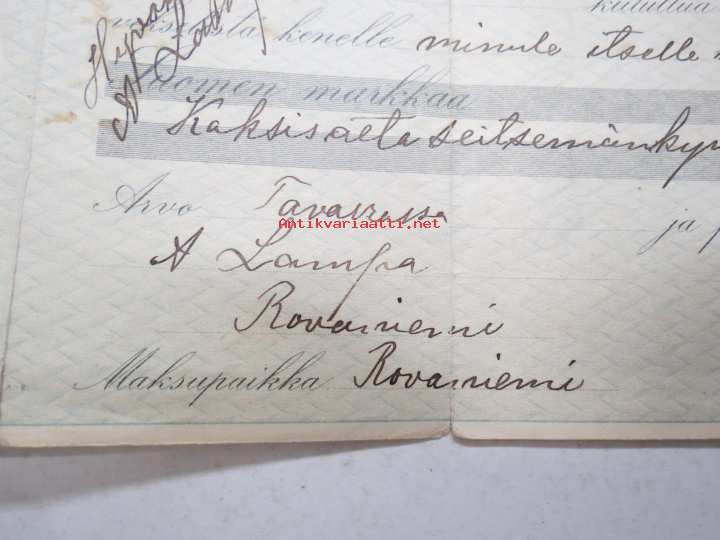 kuluttua
kenelle minule itselle
Suomen markkaa
Kaksisataseitsemänkym
Arvo Tavarassa
Antikvariaatti.net
ja
A Lampa
Rovaniemi
Maksupaikka Rovaniemi